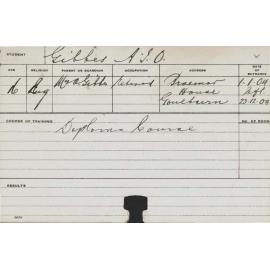 STUDENT Gibbes A.J.O.
AGE RELIGION PARENT OR GUARDIAN OCCUPATION ADDRESS DATE OF ENTRANCE
16 Mrs A. Gibbes Retired Braemar 1.1.04
House Left
Goulburn 23.12.04
COURSE OF TRAINING NO. OF ROOM
Diploma Course
RESULTS